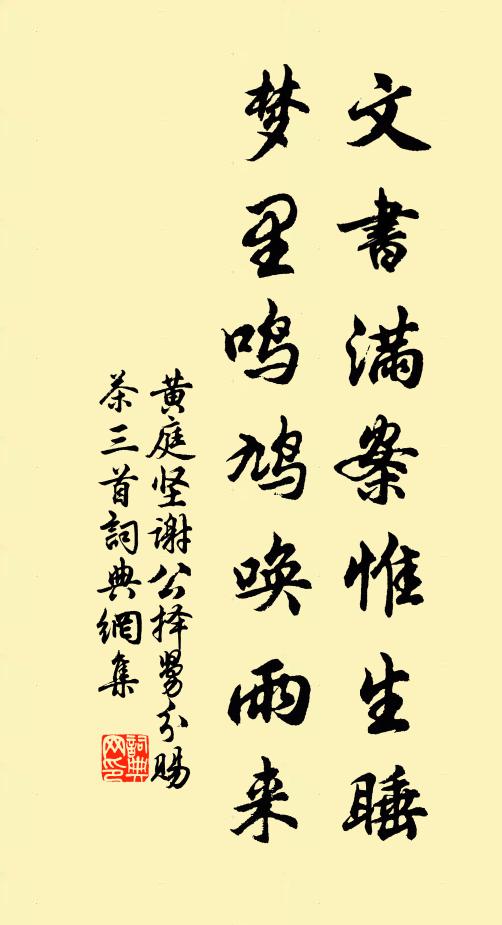 文書满案惟生睡
梦里鸣鸠唤雨来
黄庭坚谢公择舅分赐
茶三首詞典網集
詞典
网印